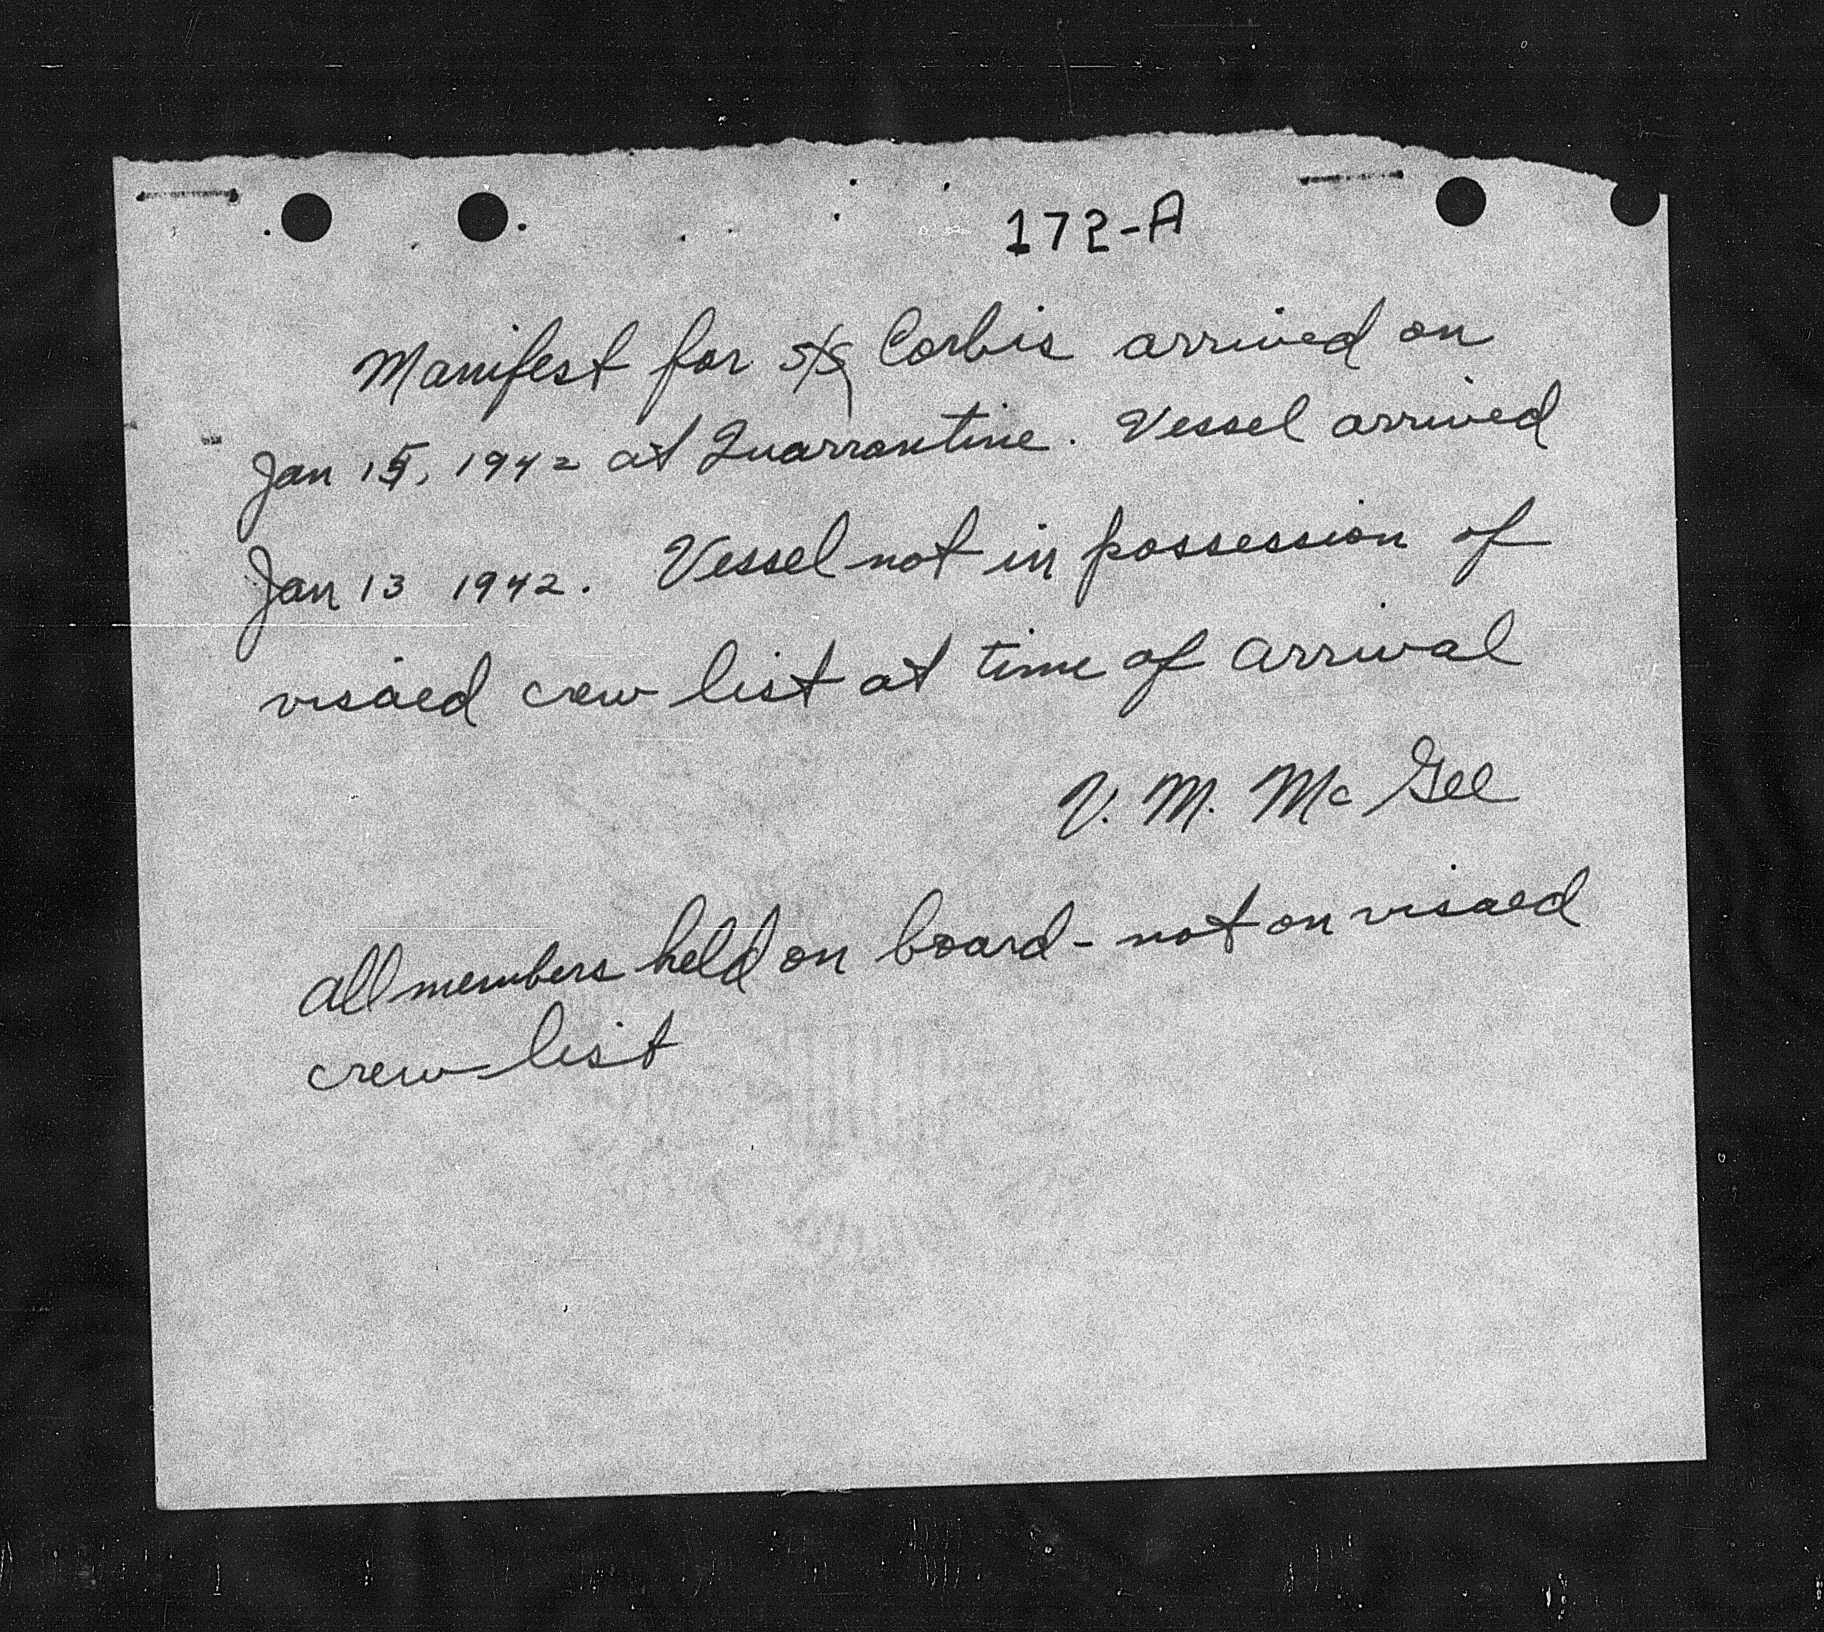 172-A
Manifest for S/S Corbis arrived on
Jan 15, 1942 at Quarrantine. Vessel arrived
Jan 13 1942. Vessel not in possession of
visaed crew list at time of arrival
V. M. McGee
all members held on board - not on visaed
crew list